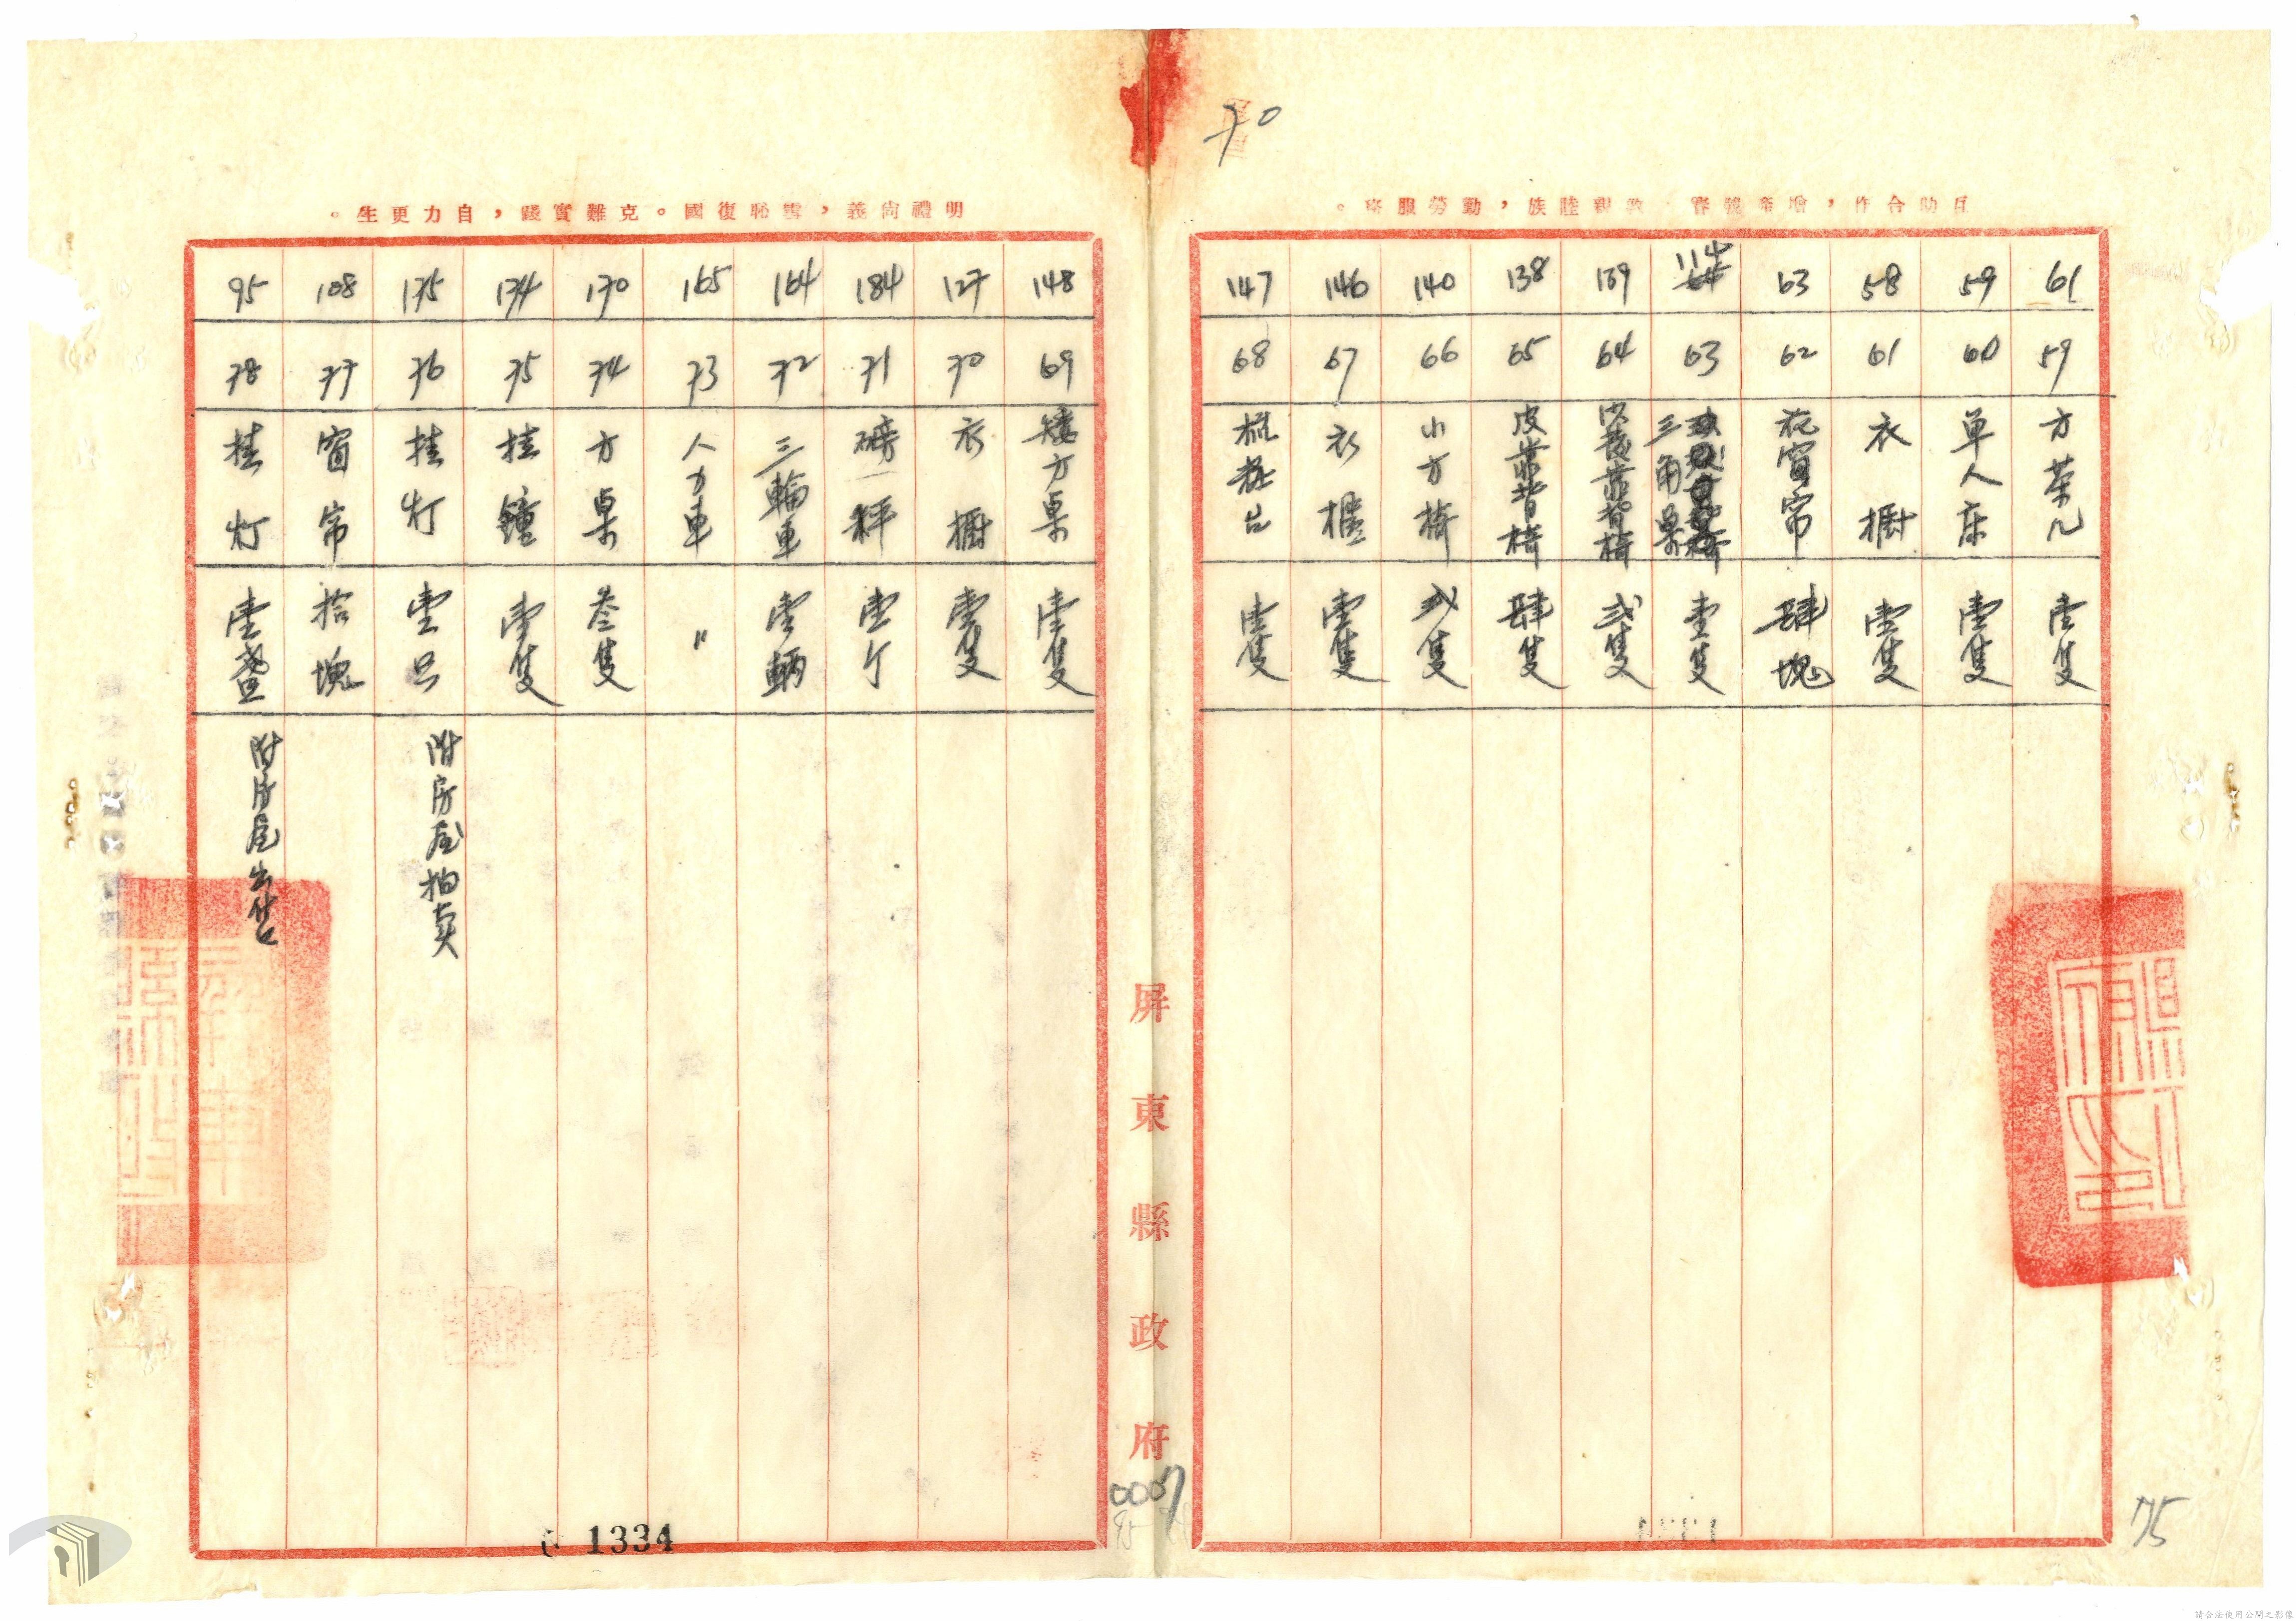 70
互助合作，增產競賽。敦親睦族，勤勞服務。
61 59 方茶几 壹隻
59 60 單人床 壹隻
58 61 衣橱 壹隻
63 62 花窗帘 肆塊
114 63 三角桌 壹隻
139 64 靠背椅 弍隻
138 65 皮靠背椅 肆隻
140 66 小方椅 弍隻
146 67 衣櫃 壹隻
147 68 梳粧台 壹隻
屏東縣政府
0007
75
明禮尚義，雪恥復國。克難實踐，自力更生。
148 69 矮方桌 壹隻
127 70 衣橱 壹隻
184 71 磅秤 壹个
164 72 三輪車 壹輌
165 73 人力車 〃
170 74 方桌 叁隻
174 75 挂鐘 壹隻
175 76 挂灯 壹只 附房屋拍卖
108 77 窗帘 拾塊
95 78 挂灯 壹盞 附房屋出售
1334
請合法使用公開之影像